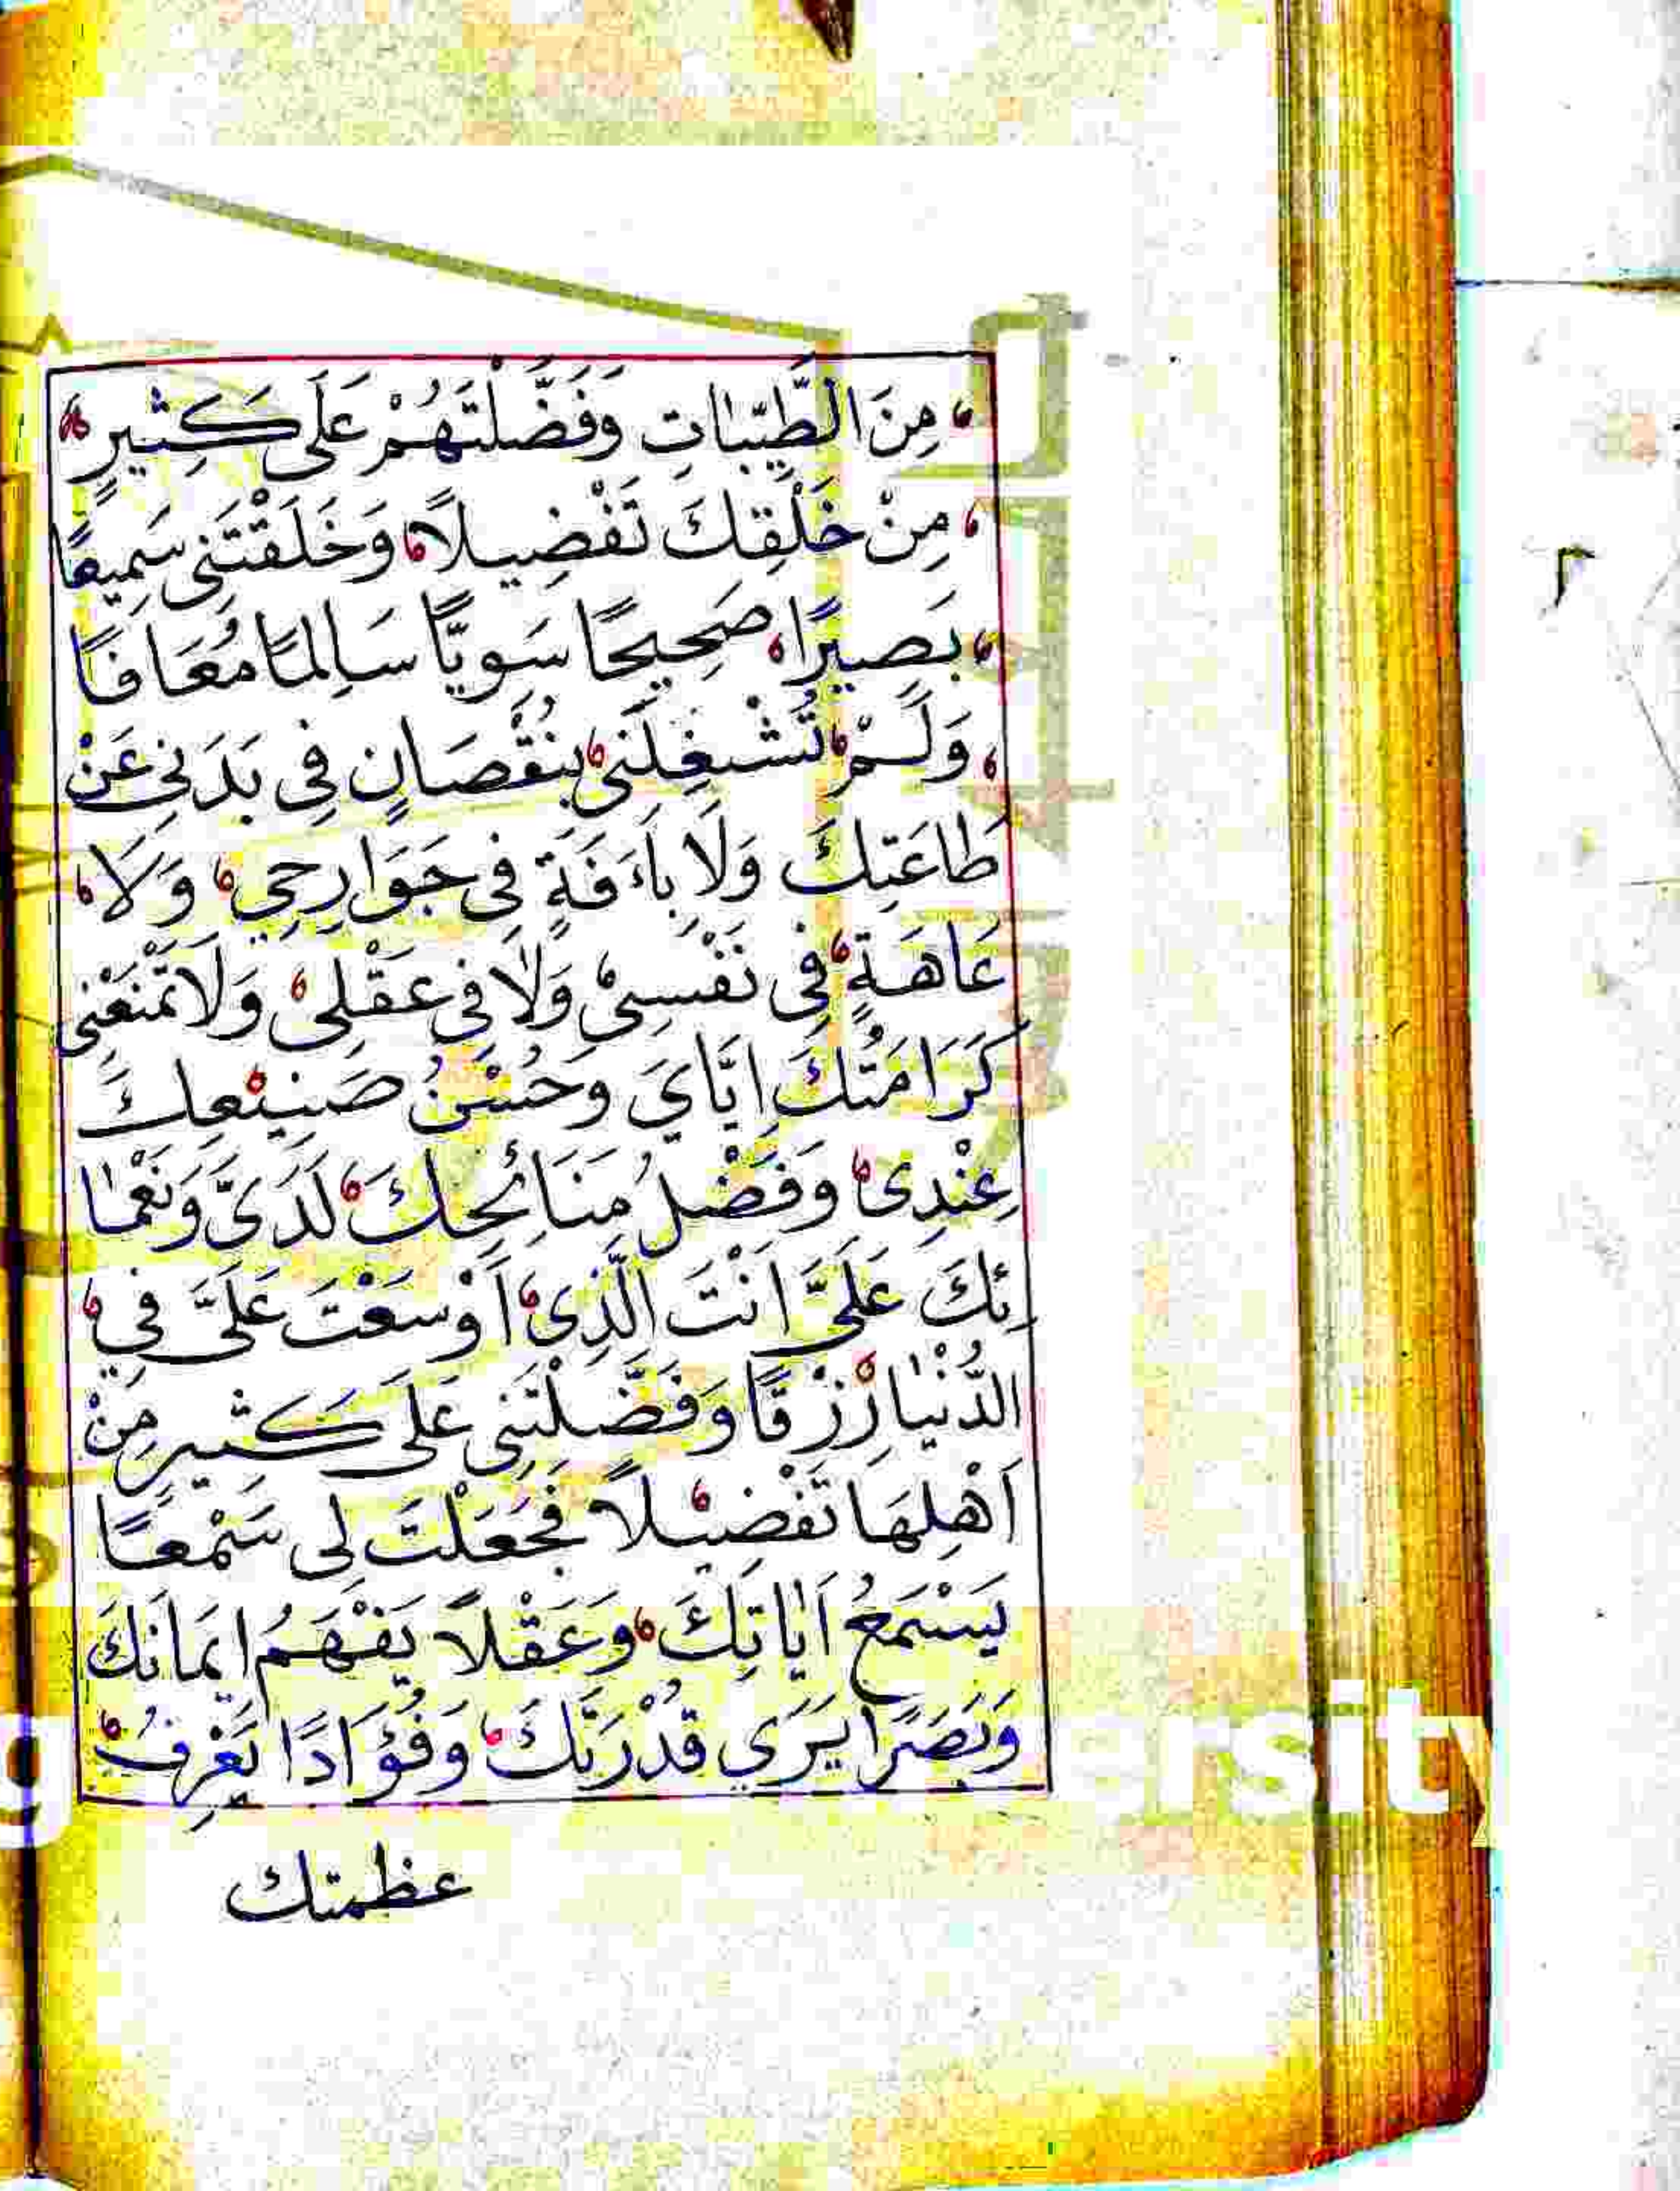 مِنَ الطَّيِّبَاتِ وَفَضَّلْتَهُمْ عَلَى كَثِيرٍ
مِنْ خَلْقِكَ تَفْضِيلًا وَخَلَقْتَنِى سَمِيعًا
بَصِيرًا صَحِيحًا سَوِيًّا سَالِمًا مُعَافًا
وَلَمْ تُشْغِلْنِى بِنُقْصَانٍ فِى بَدَنِى عَنْ
طَاعَتِكَ وَلَا بِاَءَفَةٍ فِى جَوَارِحِي وَلَا
عَاهَةٍ فِى نَفْسِىْ وَلَا فِى عَقْلِىْ وَلَا تَمْنَعْنِى
كَرَامَتُكَ اِيَّايَ وَحُسْنُ صَنِيْعِكَ
عِنْدِىْ وَفَضْلُ مِنَائِحِكَ لَدَىَّ وَنَعْمَا
ئِكَ عَلَىَّ اَنْتَ الَّذِىْ اَوْسَعْتَ عَلَىَّ فِي
الدُّنْيَا رِزْقًا وَفَضَّلْتَنِى عَلَى كَثِيرٍ مِنْ
اَهْلِهَا تَفْضِيْلًا فَجَعَلْتَ لِى سَمْعًا
يَسْمَعُ اَيَاتِكَ وَعَقْلًا يَفْهَمُ اِيمَانَكَ
وَبَصَرًا يَرَي قُدْرَتَكَ وَفُؤَادًا يَعْرِفُ
عظمتك
ersity
g
٢